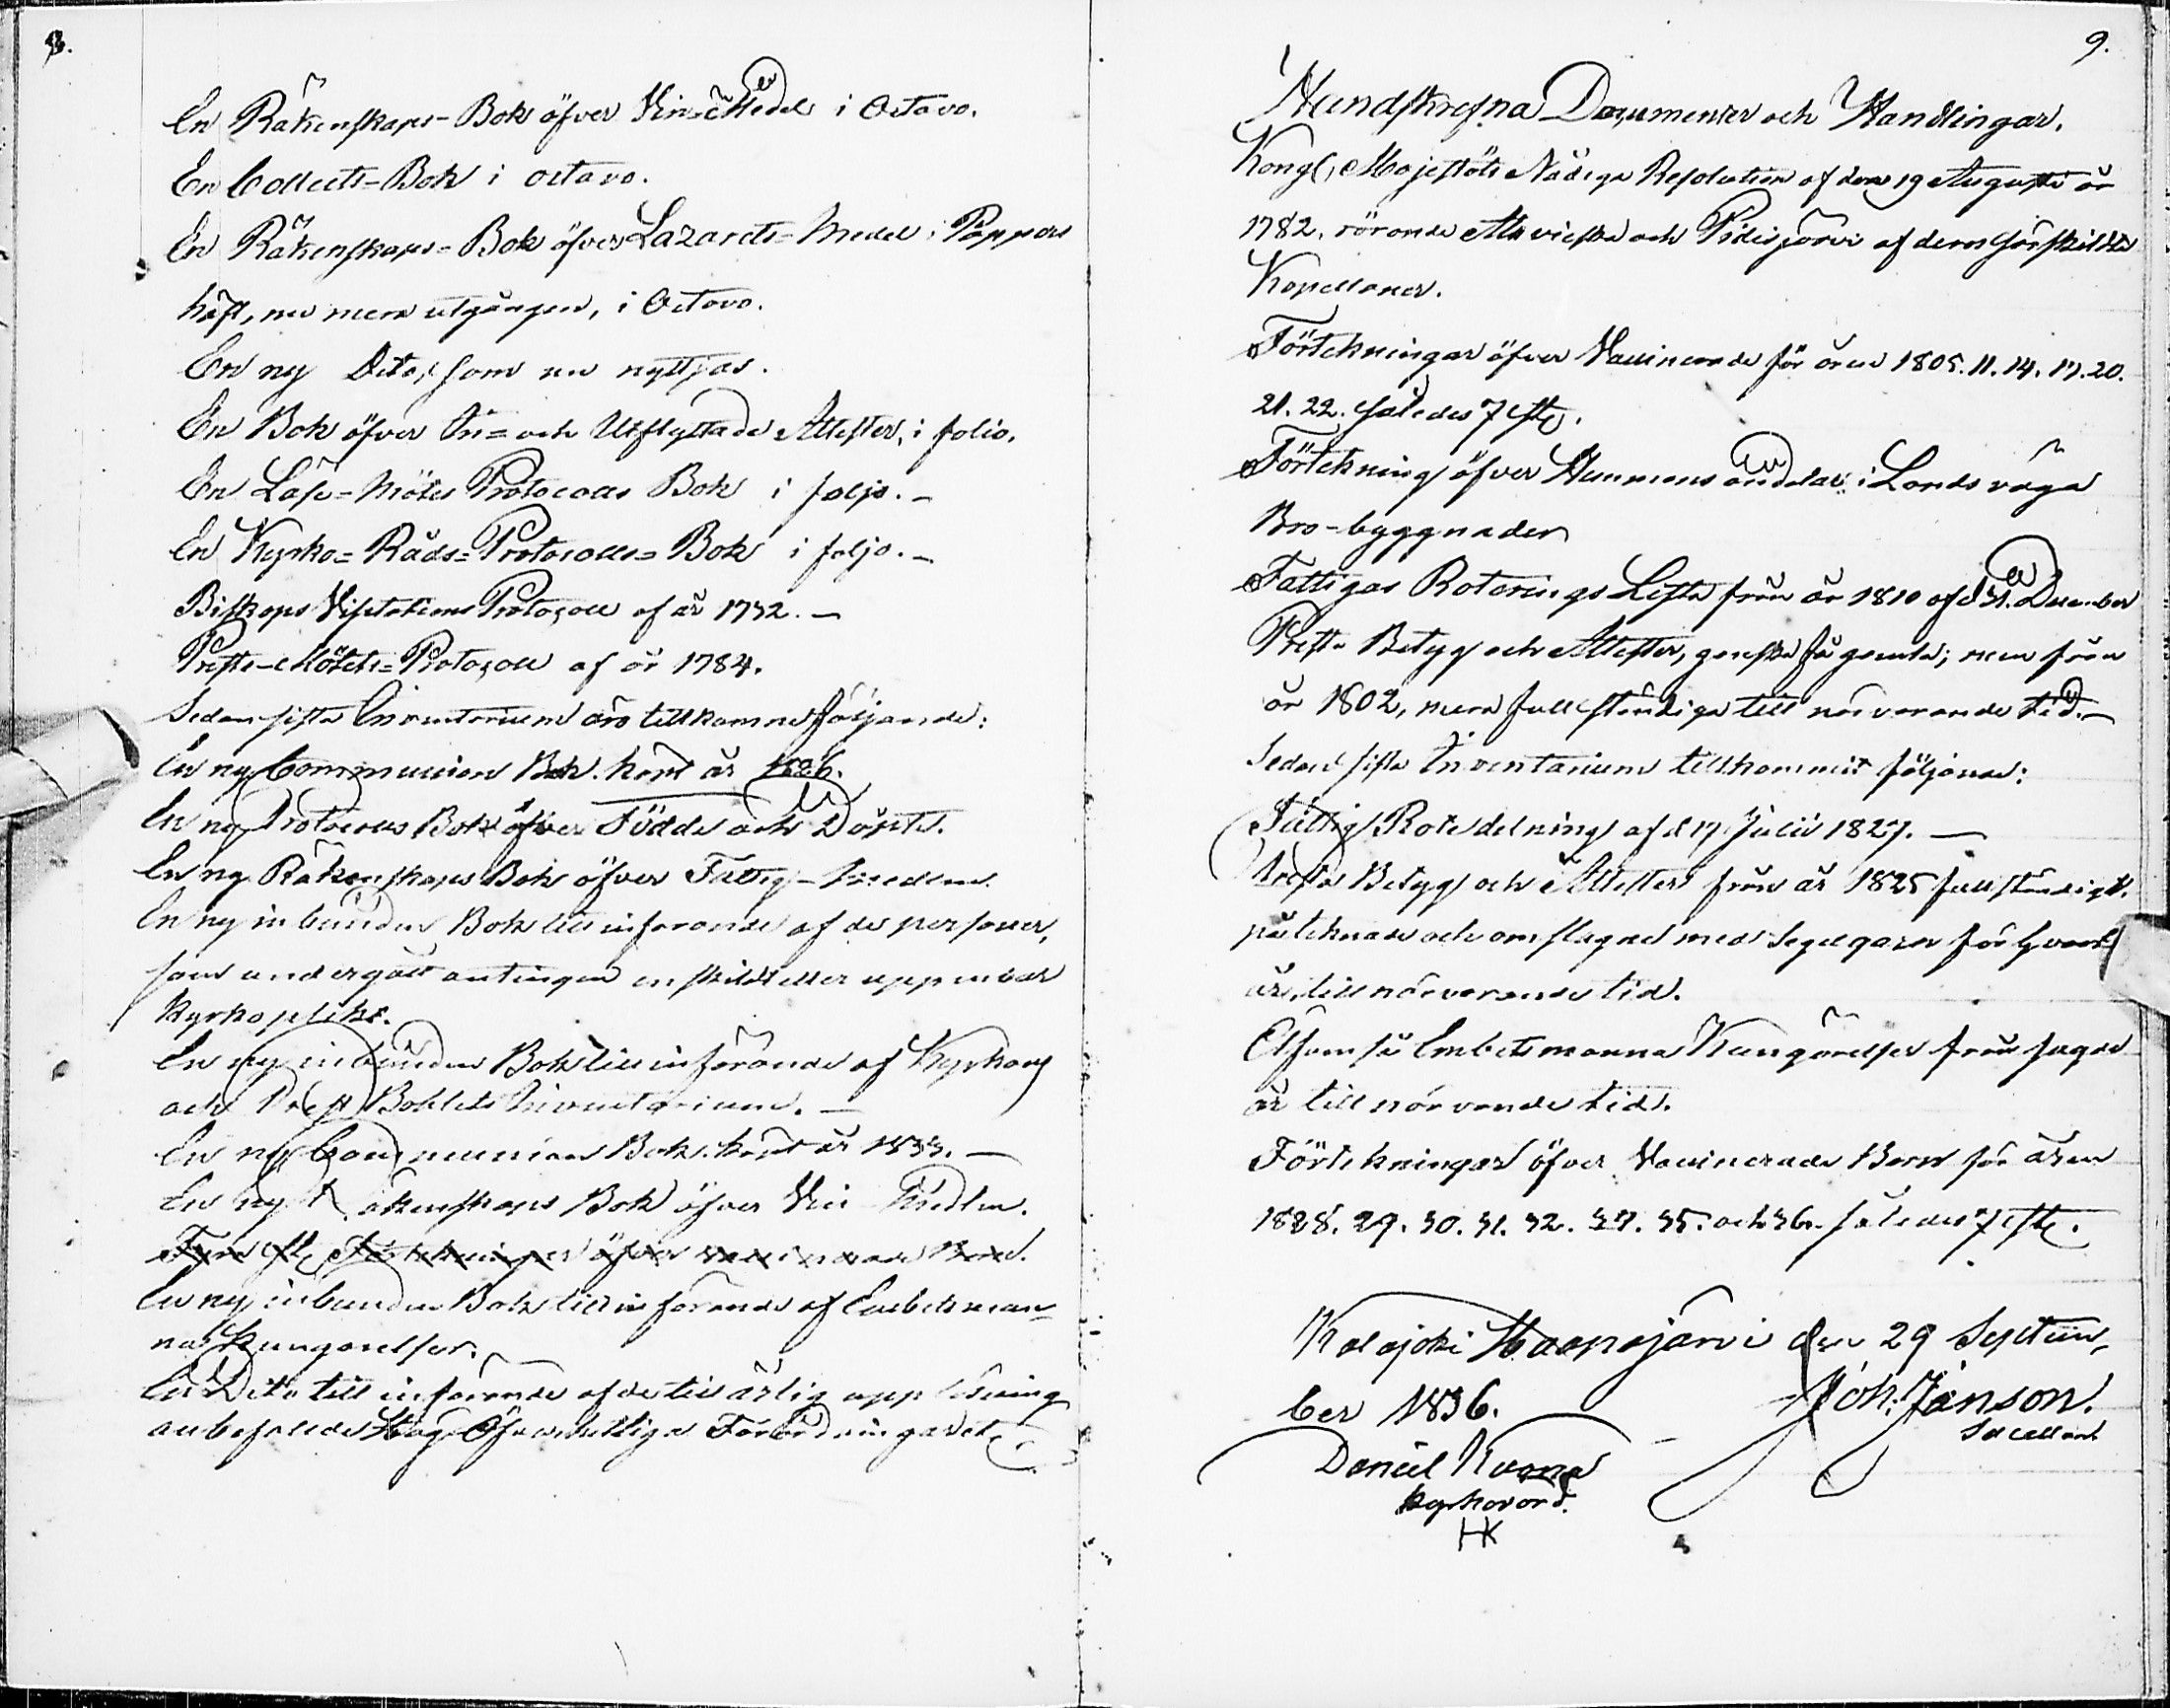 8.
En Räkenskaps-Bok öfver Vin-Medel i Octavo.
En Collects-Bok i octavo.
En Räkenskaps-Bok öfver Lazarets-Medel i Pappers
häft, nu mera utgången, i Octavo.
En ny Dito, som nu nyttjas.
En Bok öfver In- och Utflyttade Attester, i folio.
En Läse-Mötes Protocolls Bok i foljo.-
En Kyrko-Råds-Protocolls-Bok i foljo.-
Biskops Visitations Protocoll af år 1732.-
Prest-Mötets-Protocoll af år 1784.
Sedan sista Inventarium äro tillkomne följande:
En ny Communion Bok. köpt år 1826.
En ny Protocolls Bok öfver Födde och Döpte.
En ny Räkenskaps Bok öfver Fattig-Medlen.
En ny inbunden Bok till införande af de personer,
som undergått antingen enskild eller uppenbar
kyrkoplikt.
En ny inbunden Bok till införande af Kyrkans
och Prest Bohlets Inventarium.-
En ny Communion Bok. köpt år 1833.-
En ny Räkenskaps Bok öfver Vin Medlen.
Fyra st. Förtekningar öfver vaccinerade Barn.
En ny, inbunden Bok till införande af Embetsman-
na Kungörelser.
En Dito till införande af de till årlig uppläsning
anbefallde Hög Öfverhetliga Förordningar etc
9.
Handskrefna Documenter och Handlingar.
Kongl. Majestäts Nådiga Resolution af den 19 Augusti år
1782, rörande Alavieska och Pidisjärvi af dem särskildta
Kapellaner.
Förtekningar öfver Vaccinerade för åren 1805. 11. 14. 17. 20.
21. 22. således 7 st.
Förtekning öfver Hemmans andelar i Lands väga
Bro-byggnader
Fattigas Roterings Lista från år 1810 af d 31. December
Prest-Betyg och Attester, ganska få gamla; men från
år 1802, mera fullständiga till närvarande tid.-
Sedan sista Inventarium tillkommit följande:
Fattig Rotedelning af d 17 Julii 1827.-
Prest Betyg och Attester från år 1825 fullständigt.
påteknade och omslagne med Segelgarn för hvart
år, till närvarande tid.
Äfsom så Embetsmanna Kungörelser från sagde
år till närvande tid.
Förtekningar öfver Vaccinerade Barn för åren
1828. 29. 30. 31. 32. 33. 35. och 36. således 7 st.
Kalajoki Haapajärvi den 29 Septem-
ber 1836.
Joh: Janson.
Sacellan
Daniel Kuona
kyrkovärd.
HK